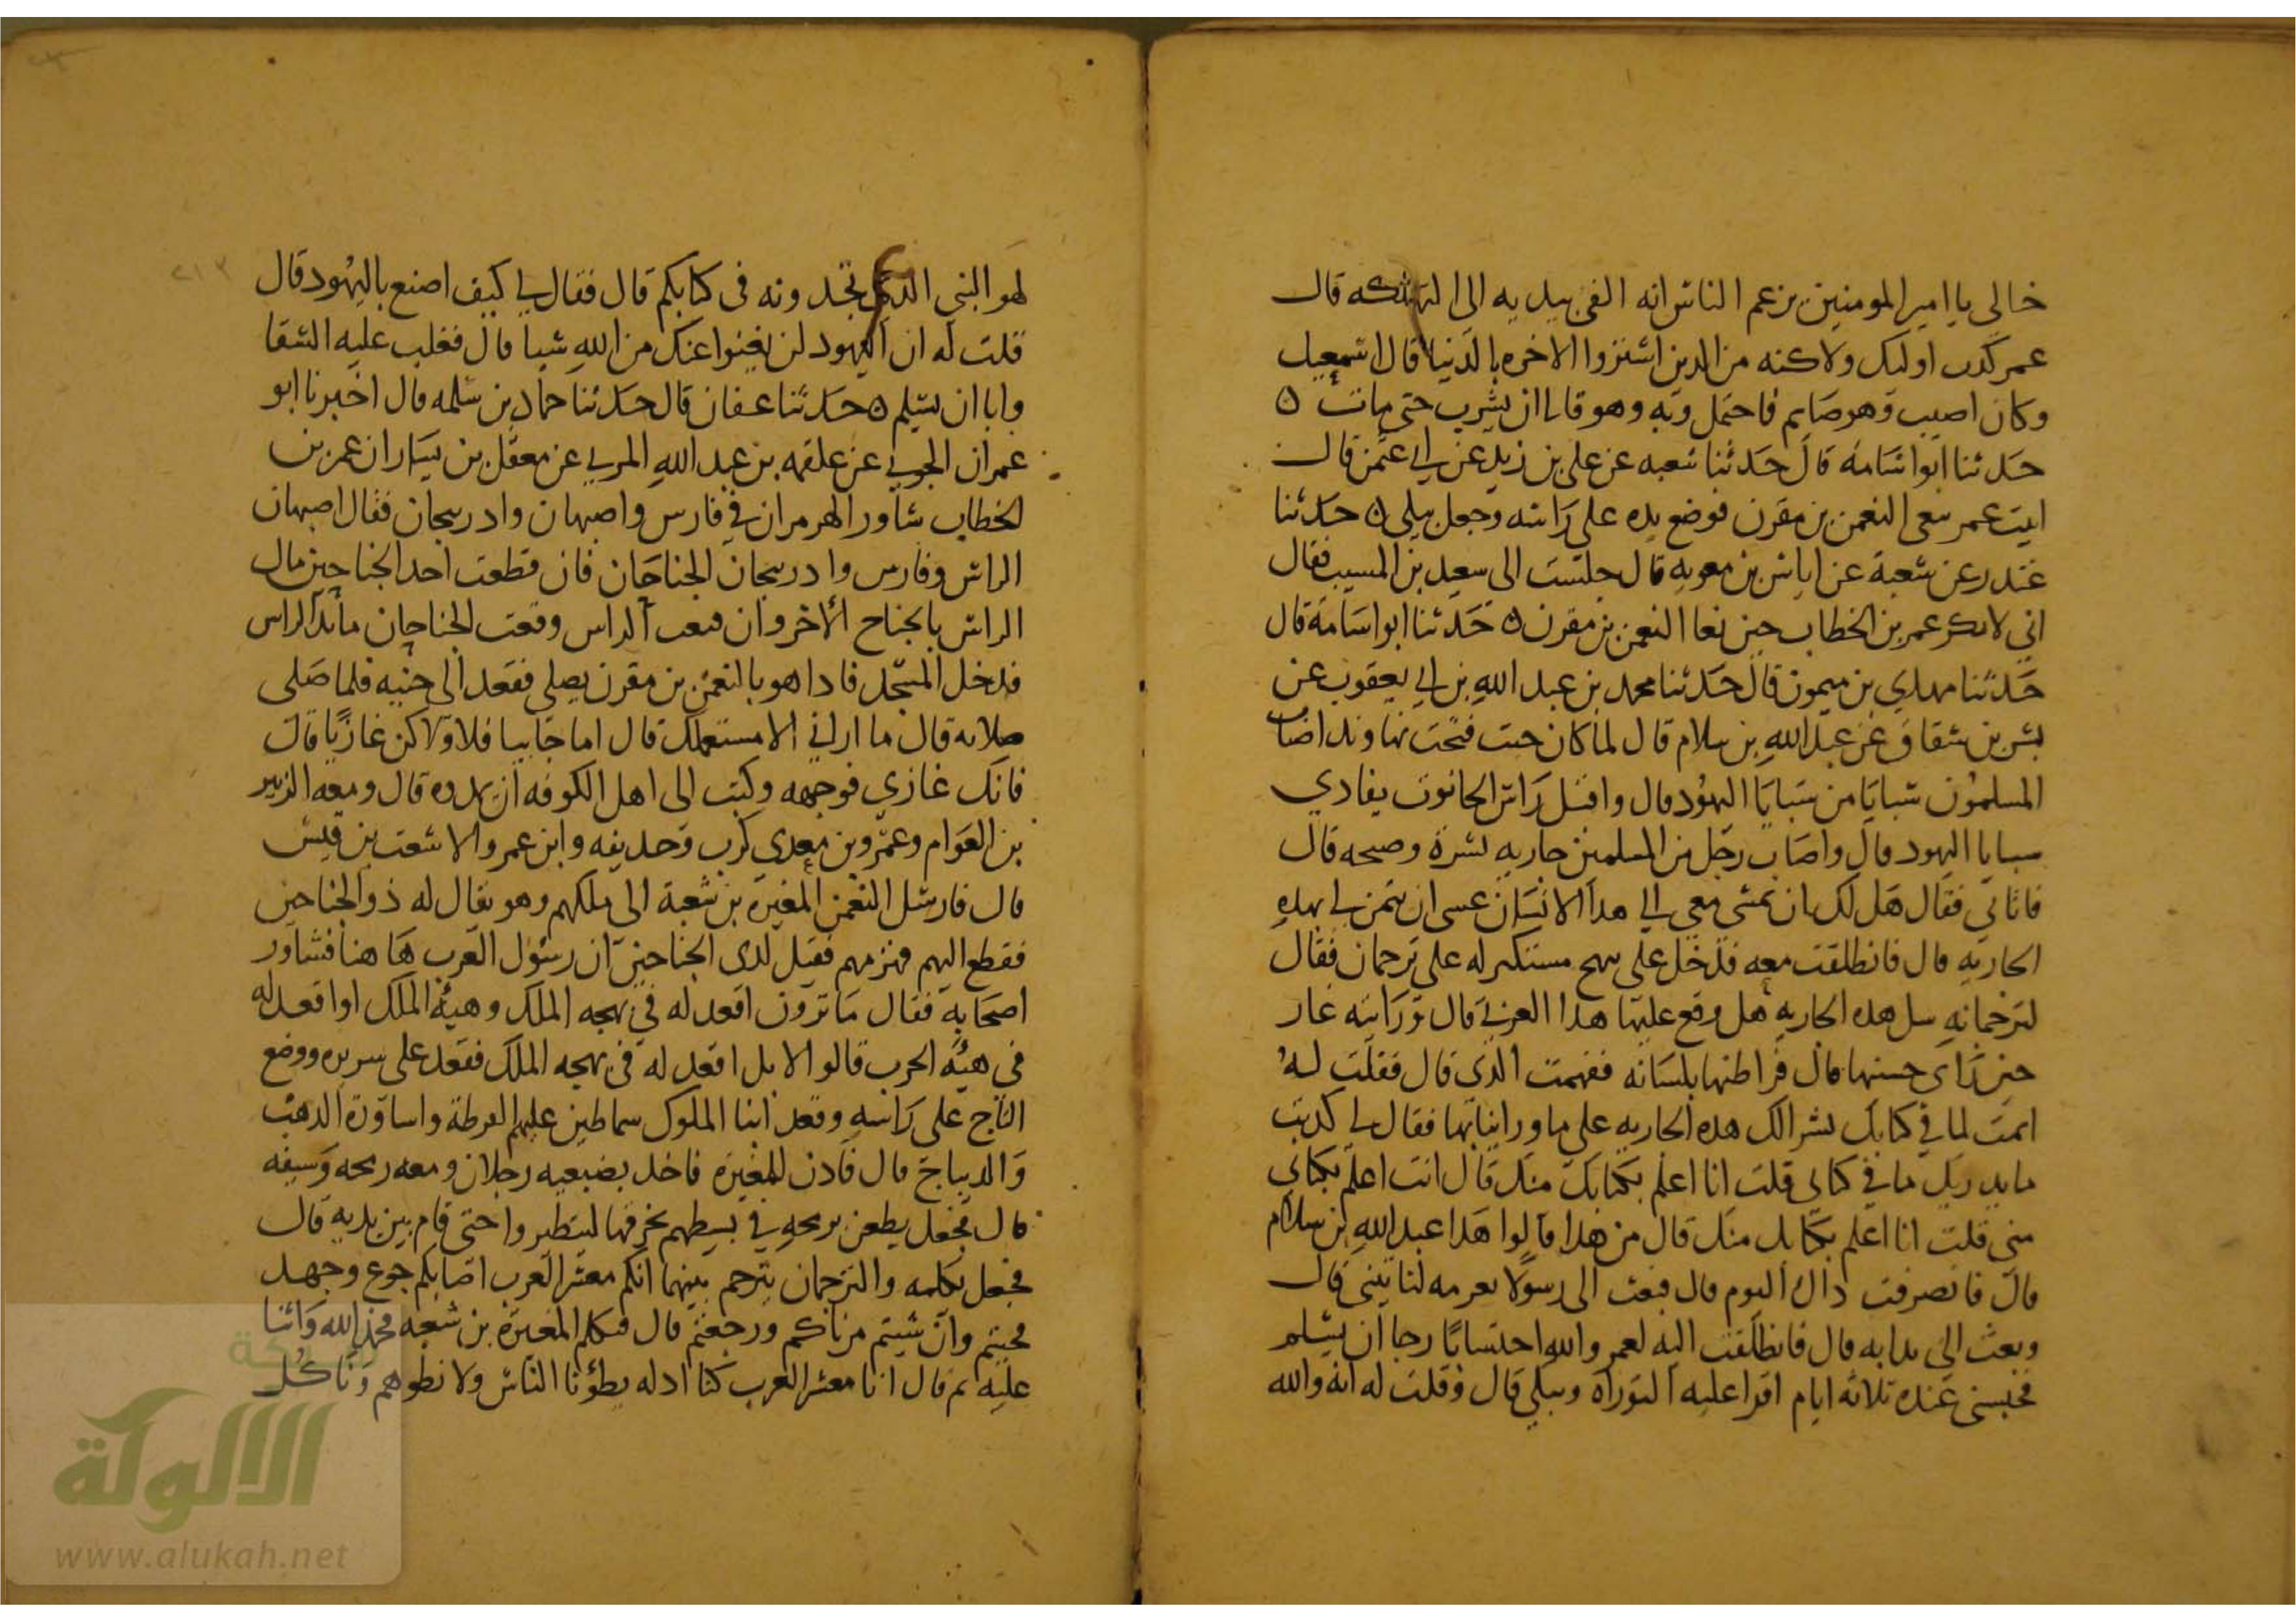 خالي يا امير المومنين يزعم الناس انه القى بيديه الى التهلكه قال
عمر كذب اوليك ولاكنه من الدين اشتروا الاخره بالدنيا قال اسمعيل
وكان اصيب وهو صايم فاحتمل وبه وهو قاا ان يشرب حتى مات ه
حدثنا ابو اسامة قال حدثنا شعبه عن على بن زيد عن ابي عثمن قال
اتيت عمر بنعي النعمن بن مقرن فوضع يده على راسه وجعل يبكي ه حدثنا
غندر عن شعبة عن اياس بن معويه قال جلست الى سعيد بن المسيب فقال
اني لادكر عمر بن الخطاب حين نعا النعمن بن مقرن ه حدثنا ابو اسامة قال
حدثنا مهدي بن ميمون قال حدثنا محمد بن عبد الله بن ابي يعقوب عن
بشر بن شغاف عن عبد الله بن سلام قال لما كان حيث فتحت نهاوند اصاب
المسلمون سبايا من سبايا اليهود قال واقبل راس الجالوت يفادي
سبايا اليهود قال واصاب رجل من المسلمين جاريه بشرة وصبحه قال
فاتاني فقال هل لك ان تمشى معي الي هدا الانسان عسى ان يثمن لي بهده
الجاريه قال فانطلقت معه فدخل على شيخ مستكبر له على ترجمان فقال
لترجمانه سل هده الجاريه هل وقع عليها هدا العربي قال ورايته غار
حين راى حسنها قال فراطنها بلسانه ففهمت الذي قال فقلت له
اثمت لما في كتابك بسوالك هده الجاريه على ما ورا ثيابها فقال لي كدبت
ما يدريك ما في كتابي قلت انا اعلم بكتابك منك قال انت اعلم بكتابي
مني قلت انا اعلم بكتابك منك قال من هدا قالوا هدا عبد الله بن سلام
قال فانصرفت داك اليوم قال فبعث الى رسولا بعزمه لتاتيني قال
وبعث الي بدابه قال فانطلقت اليه لعمر والله احتسابا رجا ان يسلم
فحبسني عنده ثلاثه ايام اقرا عليه التوراه ويبكي قال وقلت له انه والله
لهو النبي الذي تجدونه في كتابكم قال فقال لي كيف اصنع باليهود قال
قلت له ان اليهود لن يغنوا عنك من الله شيا قال فغلب عليه الشقا
وابا ان يسلم ه حدثنا عفان قال حدثنا حماد بن سلمه قال اخبرنا ابو
عمران الجوني عن علقمه بن عبد الله المزني عن معقل بن يسار ان عمر بن
الخطاب شاور الهرمزان في فارس واصبهان وادربيجان فقال اصبهان
الراس وفارس وادربيجان الجناحان فان قطعت احد الجناحين مال
الراس بالجناح الاخر وان قطعت الراس وقعت الجناحان فابدا الراس
فدخل المسجد فادا هو بالنعمن بن مقرن يصلي فقعد الى جنبه فلما صلى
صلاته قال ما اراني الا مستعملك قال اما جابيا فلا ولاكن غازيا قال
فانك غازي فوجهه وكتب الى اهل الكوفه ان يمدوه قال ومعه الزبير
بن العوام وعمرو بن معدي كرب وحديفه وابن عمر والاشعث بن قيس
قال فارسل النعمن المغيرة بن شعبة الى ملكهم وهو يقال له ذو الجناحين
فقطع اليهم نهرهم فقيل لدى الجناحين ان رسول العرب ها هنا فشاور
اصحابه فقال ما ترون اقعد له في بهجه الملك وهيئة الملك او اقعد له
في هيئة الحرب قالوا لا بل اقعد له في بهجه الملك فقعد على سريره ووضع
التاج على راسه وقعد ابنا الملوك سماطين عليهم القرطة واساورة الدهب
والديباج قال فادن للمغيرة فاخد بضبعيه رجلان ومعه رمحه وسيفه
قال فجعل يطعن برمحه في بسطهم يخرقها ليتطيروا حتى قام بين يديه قال
فجعل يكلمه والترجمان يترجم بينهما انكم معشر العرب اصابكم جوع وجهد
فجيتم وان شيتم مرناكم ورجعتم قال فتكلم المغيرة بن شعبه فحمد الله واثنا
عليه ثم قال انا معشر العرب كنا ادله يطؤنا الناس ولا نطوهم وناكل
الالوكة
www.alukah.net